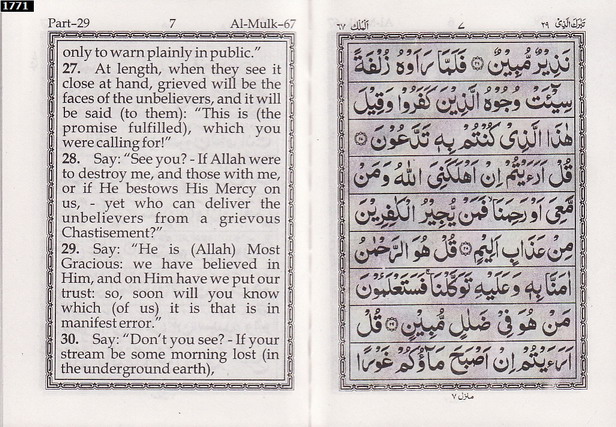 1771
Part–29 7 Al-Mulk–67
only to warn plainly in public.”
27. At length, when they see it
close at hand, grieved will be the
faces of the unbelievers, and it will
be said (to them): “This is (the
promise fulfilled), which you
were calling for!”
28. Say: “See you? - If Allah were
to destroy me, and those with me,
or if He bestows His Mercy on
us, - yet who can deliver the
unbelievers from a grievous
Chastisement?”
29. Say: “He is (Allah) Most
Gracious: we have believed in
Him, and on Him have we put our
trust: so, soon will you know
which (of us) it is that is in
manifest error.”
30. Say: “Don’t you see? - If your
stream be some morning lost (in
the underground earth),
تبٰرك الذی ٢٩ ٧ الملك ٦٧
نَذِيْرٌ مُّبِيْنٌ ﴿٢٦﴾ فَلَمَّا رَاَوْهُ زُلْفَةً
سِيْٓـَٔتْ وُجُوْهُ الَّذِيْنَ كَفَرُوْا وَقِيْلَ
هٰذَا الَّذِيْ كُنْتُمْ بِهٖ تَدَّعُوْنَ ﴿٢٧﴾
قُلْ اَرَءَيْتُمْ اِنْ اَهْلَكَنِيَ اللّٰهُ وَمَنْ
مَّعِيَ اَوْ رَحِمَنَا ۙ فَمَنْ يُّجِيْرُ الْكٰفِرِيْنَ
مِنْ عَذَابٍ اَلِيْمٍ ﴿٢٨﴾ قُلْ هُوَ الرَّحْمٰنُ
اٰمَنَّا بِهٖ وَعَلَيْهِ تَوَكَّلْنَا ۚ فَسَتَعْلَمُوْنَ
مَنْ هُوَ فِيْ ضَلٰلٍ مُّبِيْنٍ ﴿٢٩﴾ قُلْ
اَرَءَيْتُمْ اِنْ اَصْبَحَ مَآؤُكُمْ غَوْرًا
منزل ٧